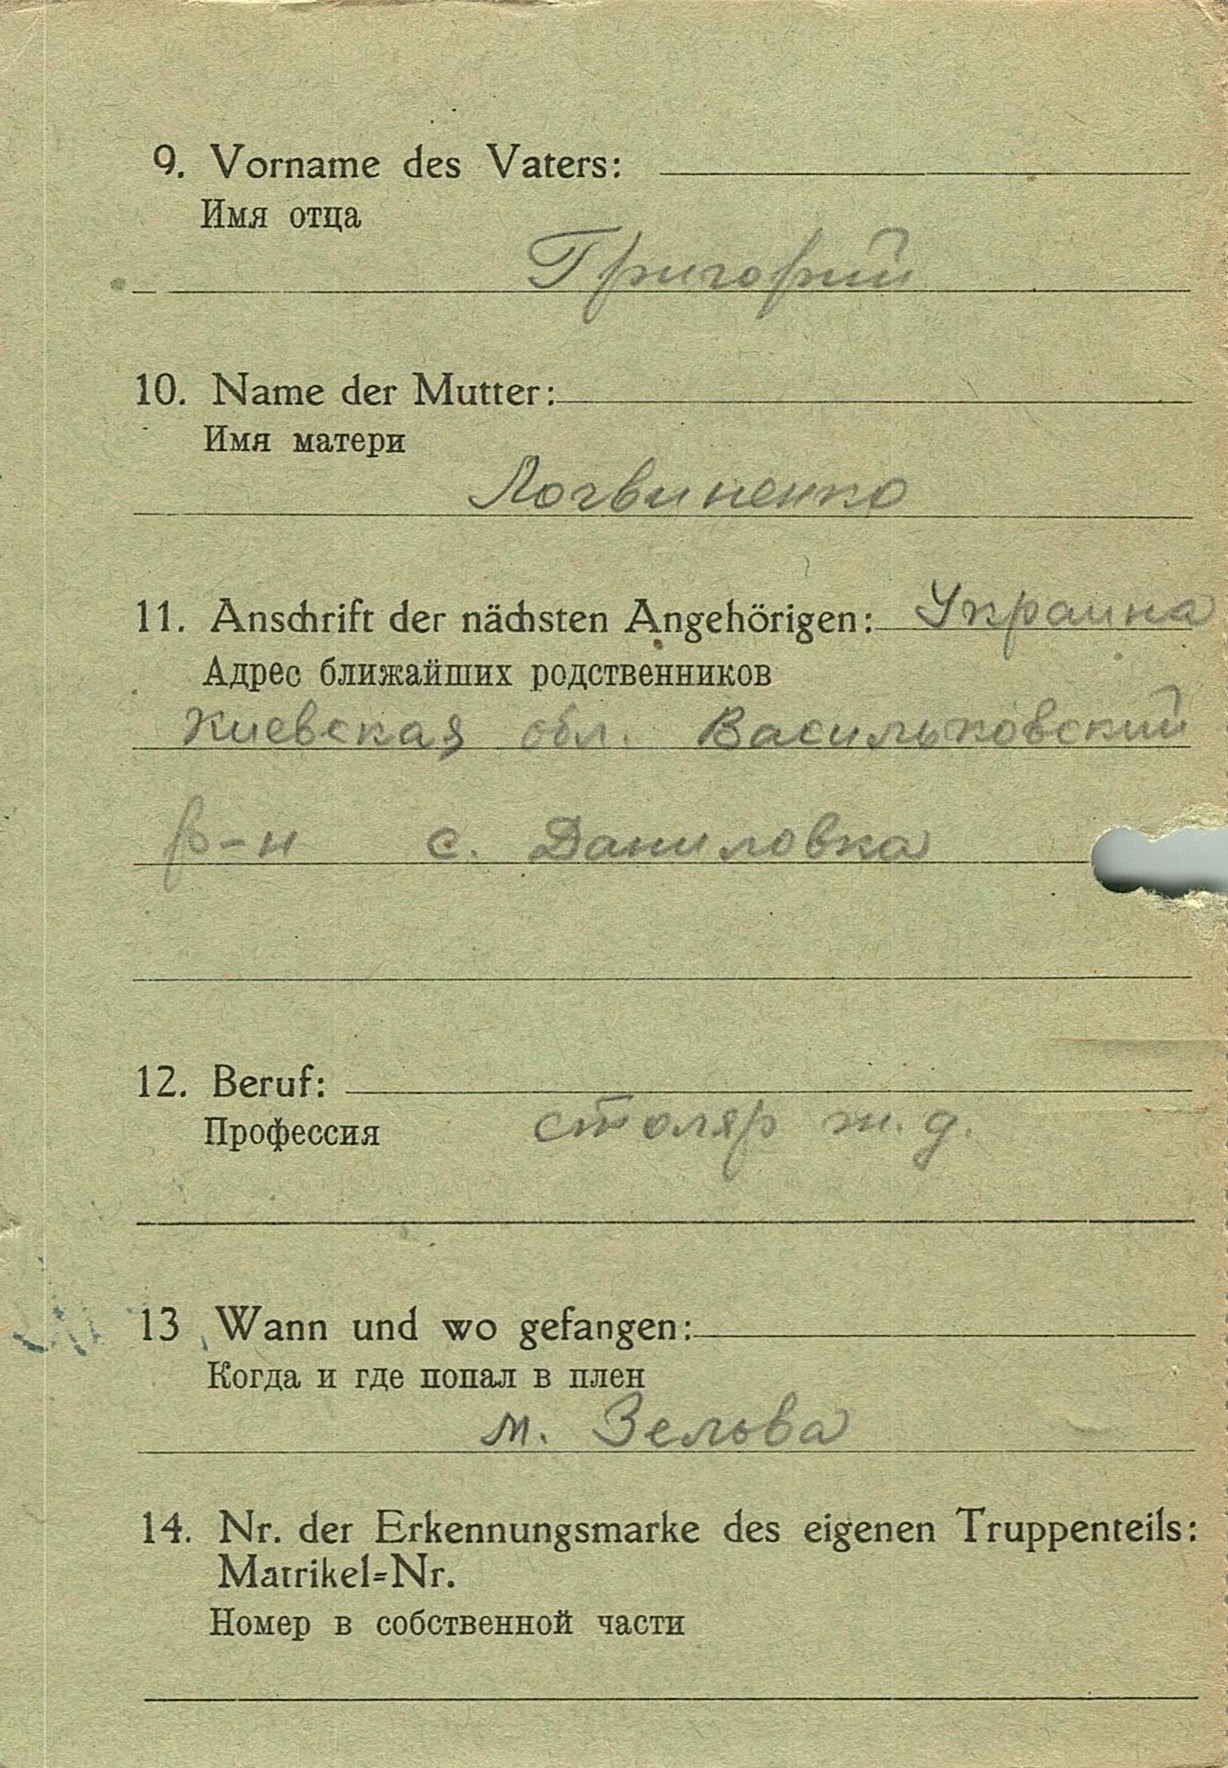 9. Vorname des Vaters:
Имя отца
Григорий
10. Name der Mutter:
Имя матери
Логвиненко
11. Anschrift der nächsten Angehörigen: Украина
Адрес ближайших родственников
Киевская обл. Васильковский
р-н с. Даниловка
12. Beruf:
Профессия
столяр ж.д.
13 Wann und wo gefangen:
Когда и где попал в плен
м. Зельва
14. Nr. der Erkennungsmarke des eigenen Truppenteils:
Matrikel=Nr.
Номер в собственной части